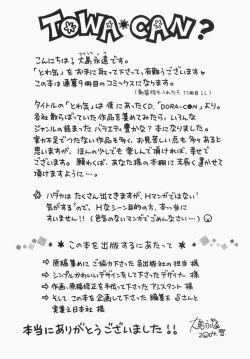 TOWA★CAN?
こんにちは!大島永遠です。
「とわ缶」をお手に取って下さって、有難うございます♥
この本は通算9冊目のコミックスになります。
タイトルの「とわ缶」は 昔にあったCD、「DORA-CAN」より。
各社散らばっていた作品を集めてみたら、いろんな
ジャンルの詰まったバラエティ豊かな?本になりました。
実力不足でつたない作品も多く、お見苦しい点も多々あると
思いますが、ほんの少しでも楽しんで頂ければ、幸せで
ございます。願わくば、あなた様の本棚に末長く置かせて
頂けますように…。
ハダカはたくさん出てきますが、Hマンガではない
気がするので、Hなシーン目的の方、本当に
すいません!!
この本を出版するにあたって
⇨ 原稿集めにご協力下さった各出版社の担当様
⇨ シンプルかわいいデザインをして下さったデザイナー様
⇨ 作画、原稿修正を手伝って下さったアシスタント様
⇨ そしてこの本を企画して下さった編集者Sさんと
実業之日本社様
本当にありがとうございました!!
大島永遠